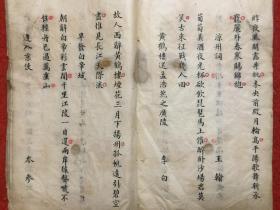 昨夜風開露井桃未央前殿月輪高平陽歌舞新承
寵簾外春寒賜錦袍
涼州詞 王翰
葡萄美酒夜光杯欲飲琵琶馬上催醉臥沙場君莫
笑古來征戰幾人回
黃鶴樓送孟浩然之廣陵 李白
故人西辭黃鶴樓煙花三月下揚州孤帆遠引碧空
盡惟見長江天際流
早發白帝城
朝辭白帝彩雲間千里江陵一日還兩岸猿聲啼不
住輕舟已過萬重山
逢入京使 岑參